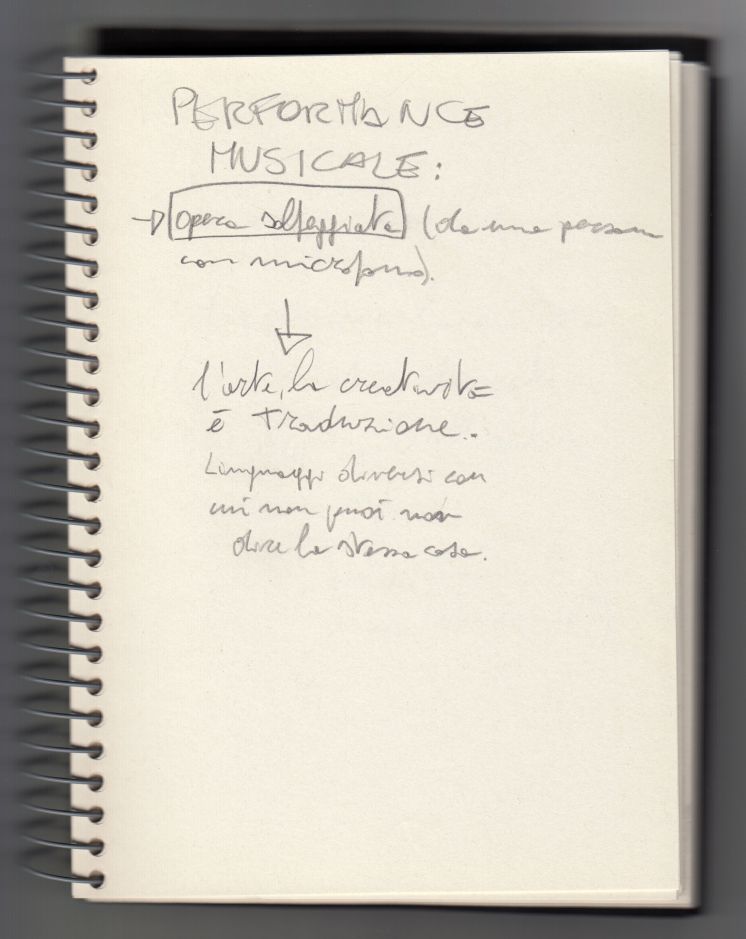 PERFORMANCE
MUSICALE:
opera solfeggiata (da una persona
con microfono).
l'arte, la creatività
è traduzione..
Linguaggi diversi con
cui non puoi non
dire la stessa cosa.